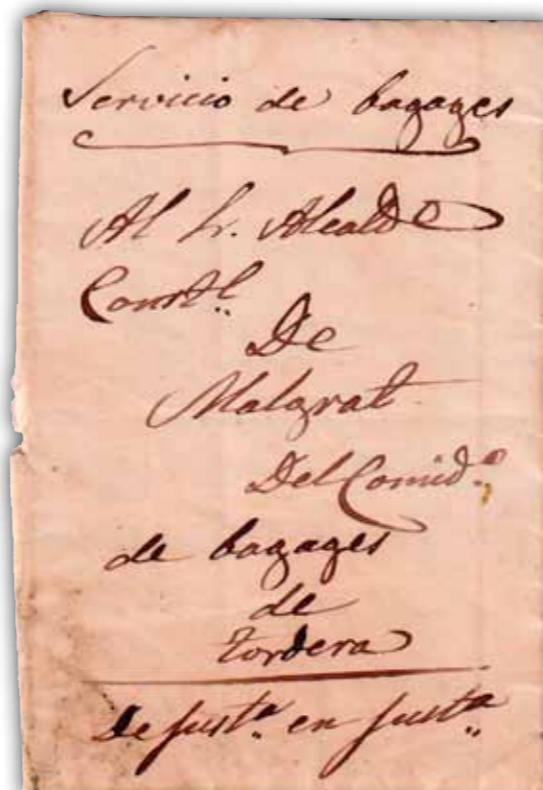 Servicio de bagages
Al Sr. Alcalde
Constl.
De
Malgrat
Del Comid.º
de bagages
de
Tordera
De Justª. en Justª.